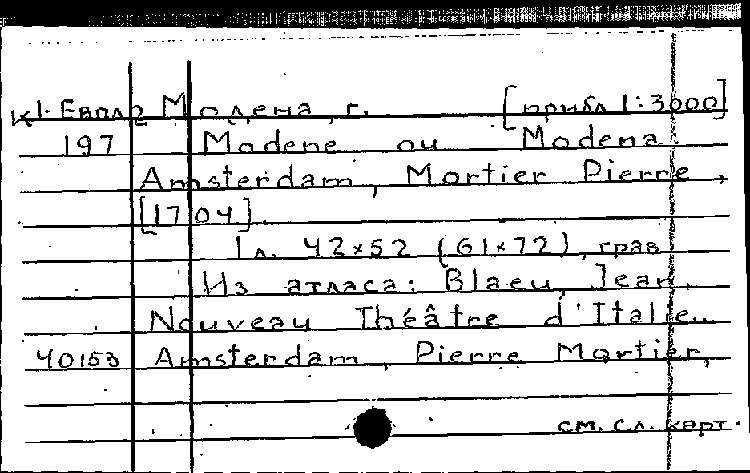 К1-Евпл2 Модена, г. [прибл 1:3000]
197 Modene ou Modena
Amsterdam, Mortier Pierre,
[1704].
1 л. 42×52 (61×72), грав
Из атласа: Blaeu, Jean.
Nouveau Théâtre d'Italie..
40153 Amsterdam, Pierre Mortier,
см. сл. карт.